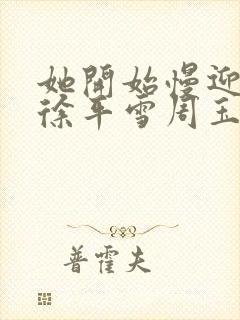 她開始慢迎
徐平雪周玉
普霍夫